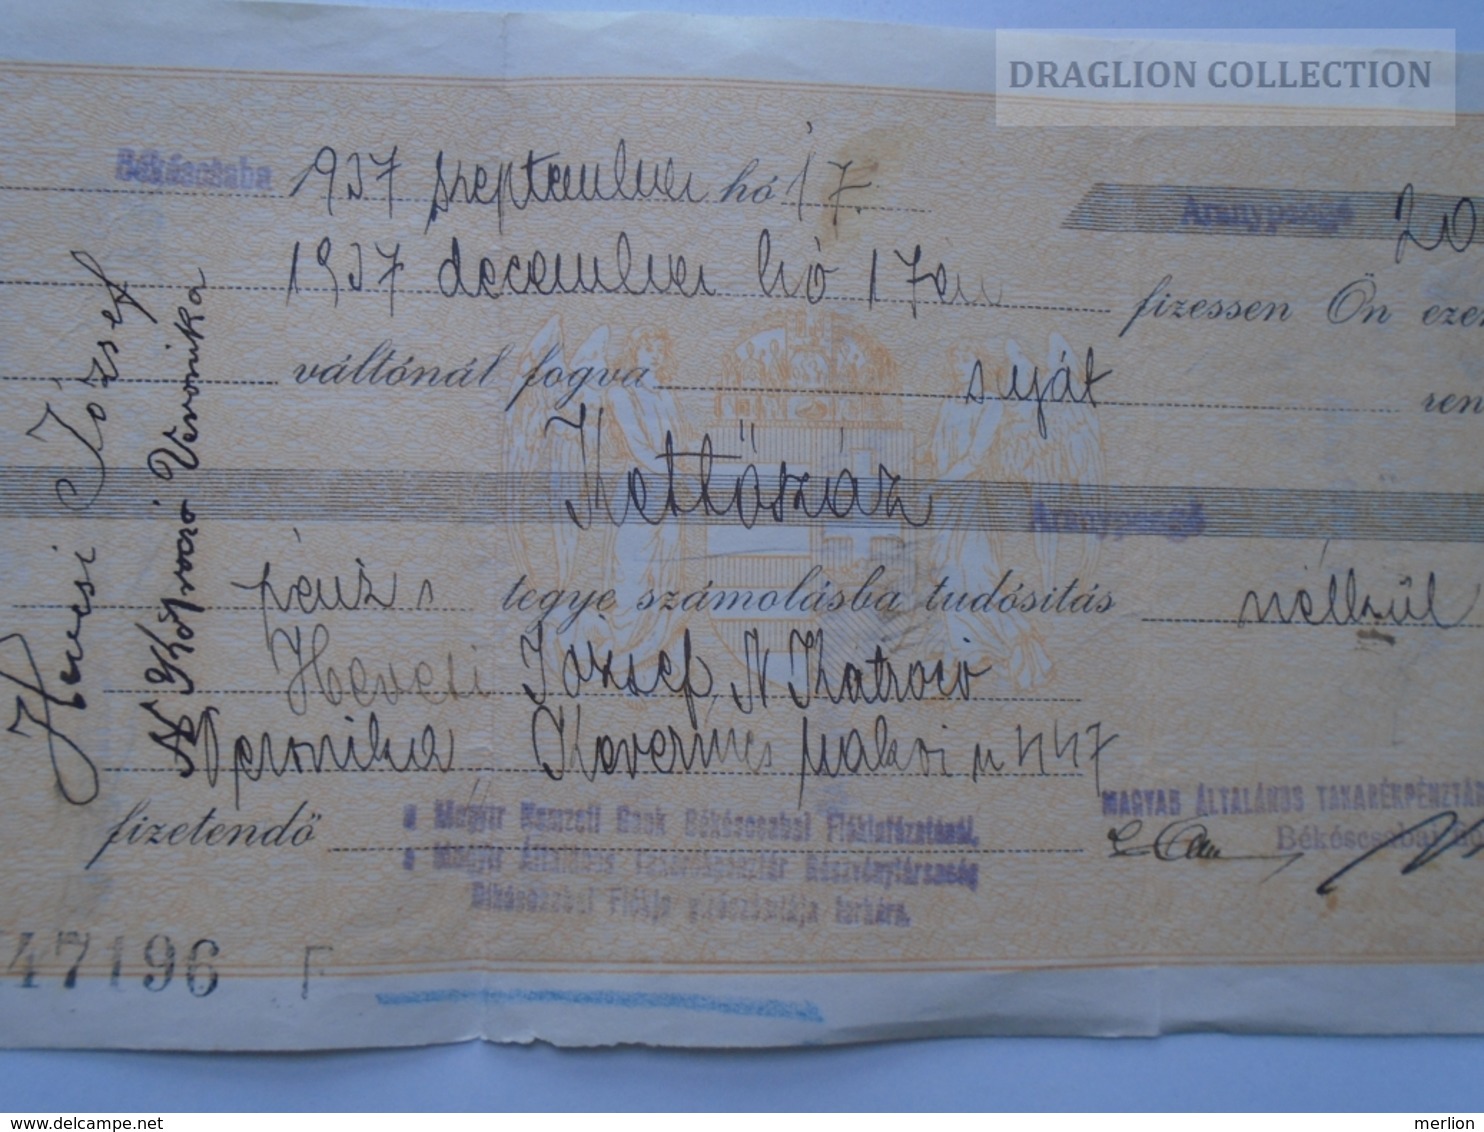 DRAGLION COLLECTION
Békéscsaba 1937 szeptember hó 17.
Aranypengő 20
1937 december hó 17én fizessen Ön eze
váltónál fogva saját ren
Kettőszáz Aranypengő
pénz tegye számolásba tudósitás nélkül
Hevesi József, N
Veronika 447
fizetendő a Magyar Nemzeti Bank Békéscsabai Fiókintézeténél,
a Magyar Általános Takarékpénztár Részvénytársaság
Békéscsabai Fiókja terhére.
MAGYAR ÁLTALÁNOS TAKARÉKPÉNZTÁR
Békéscsabai
Hevesi József
Veronika
47196 F
delcampe.net
merlion